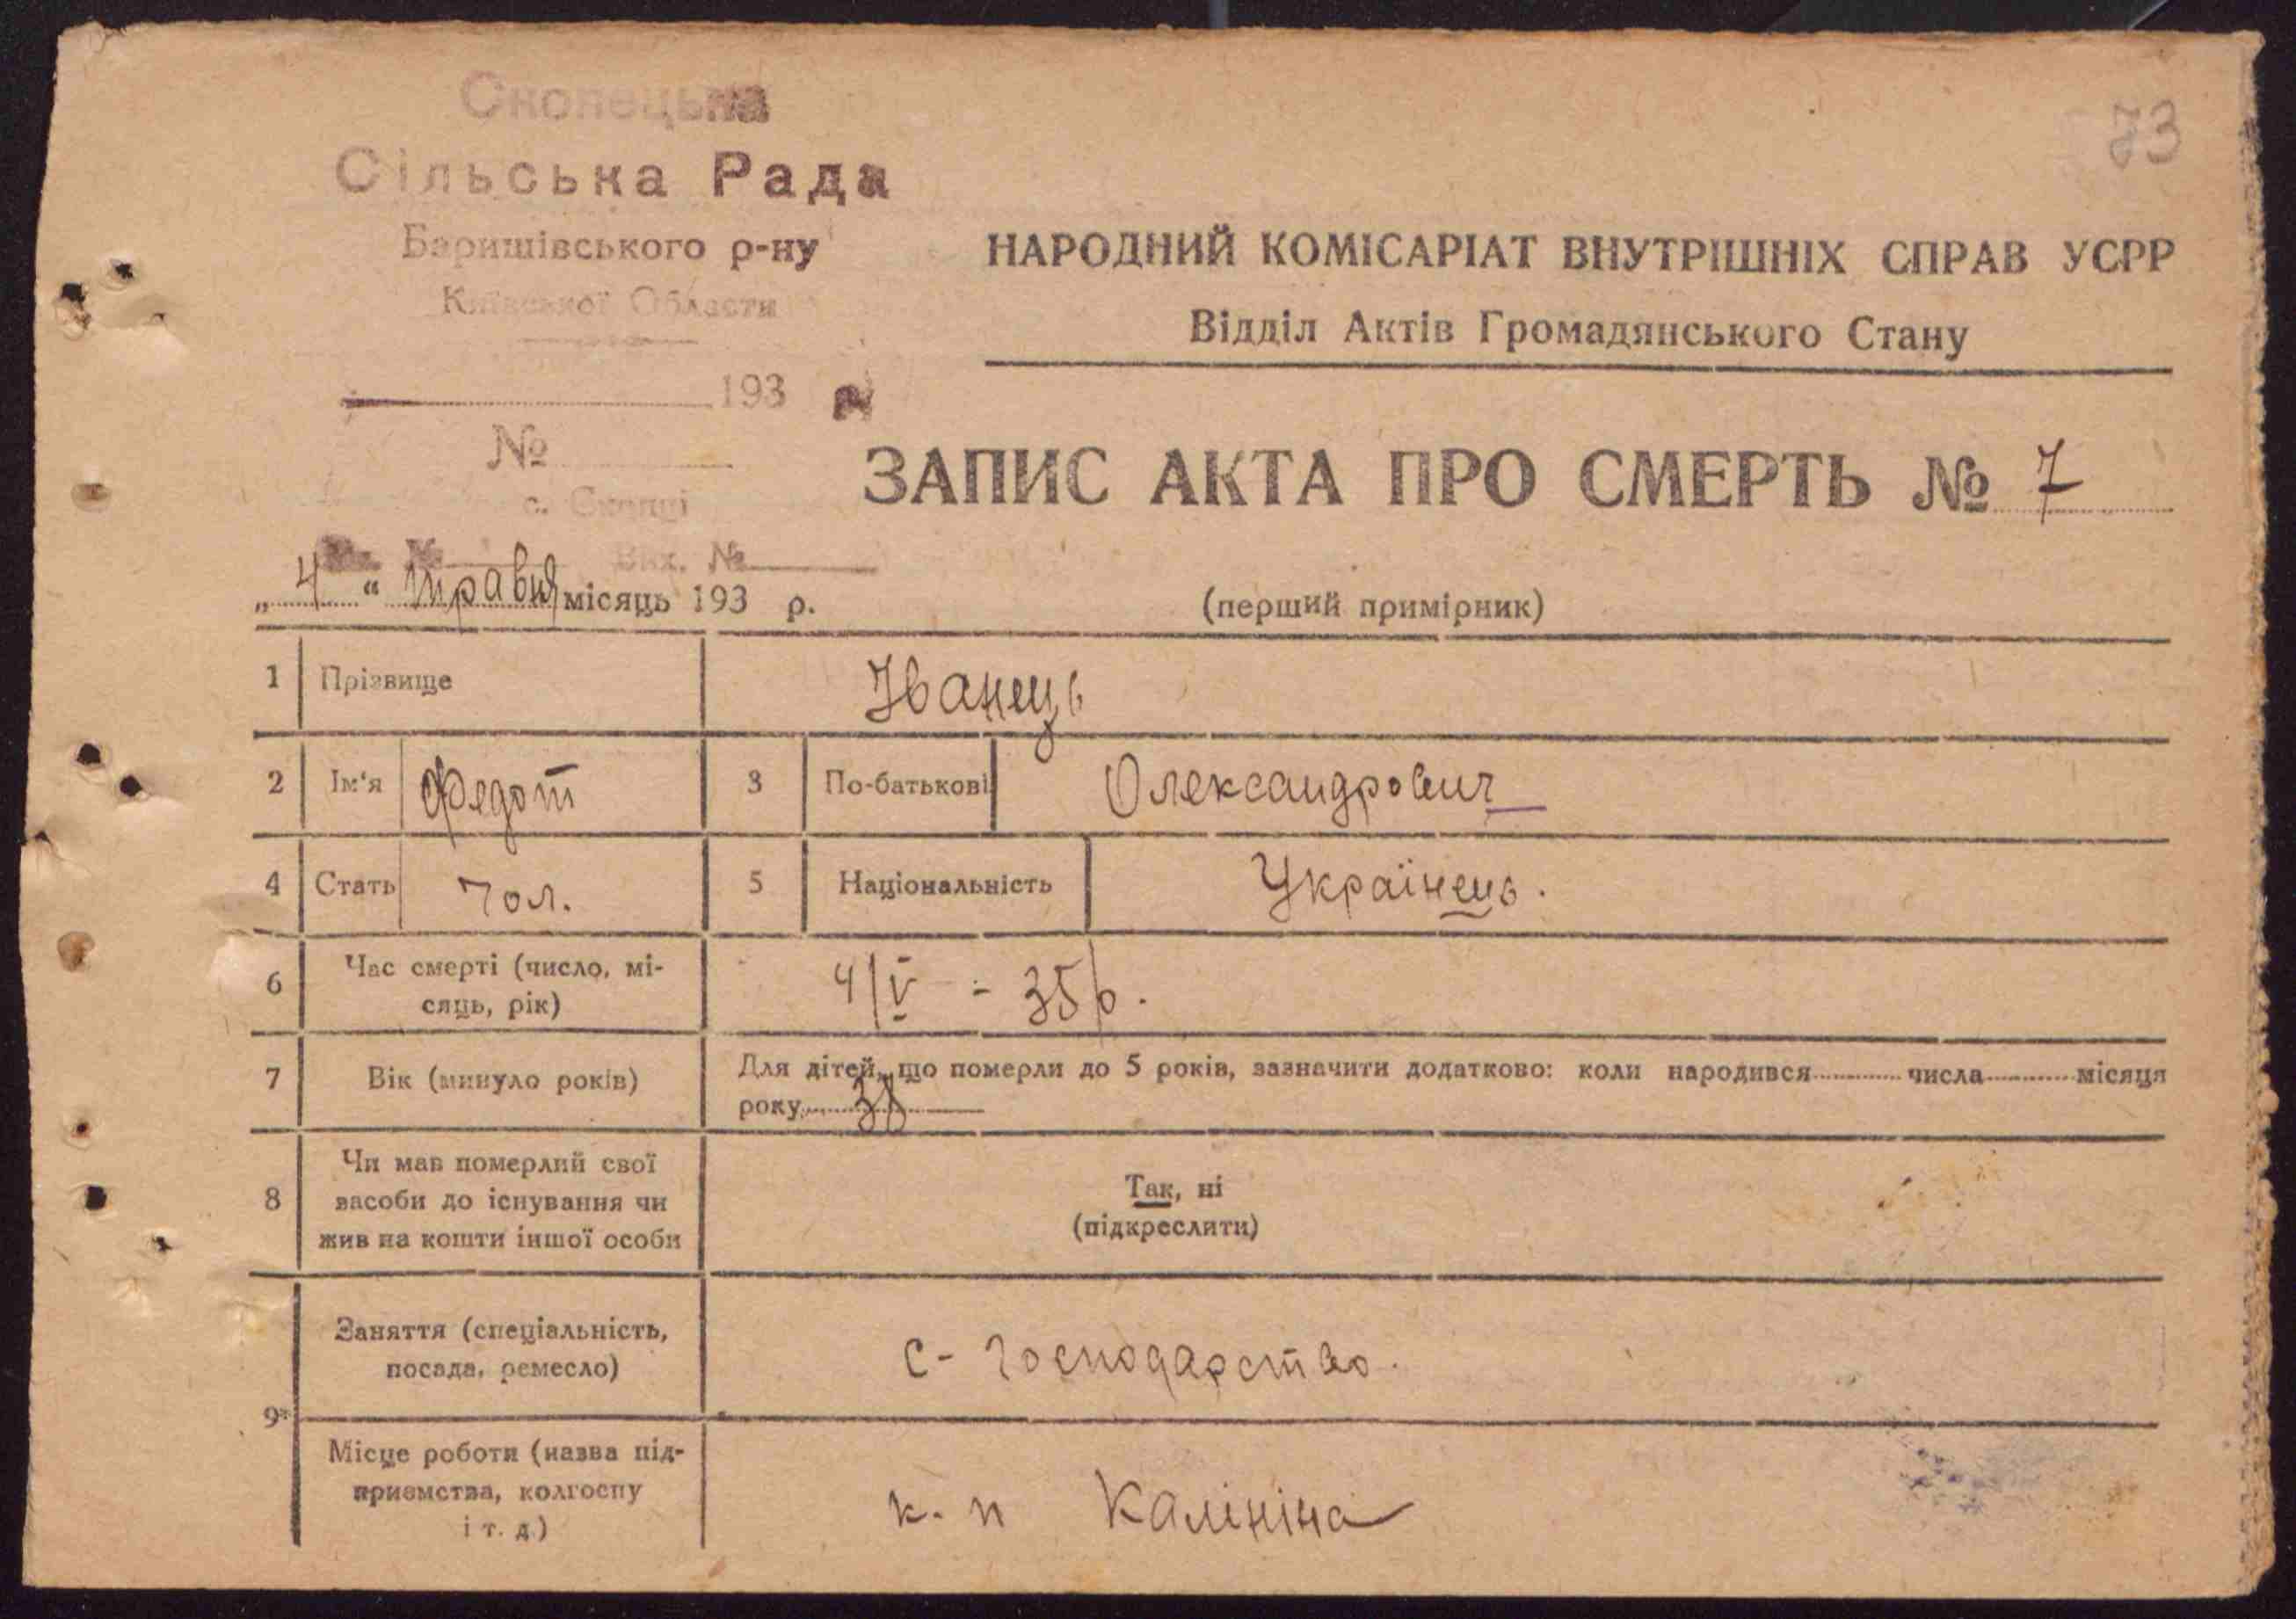 Скопецька
Сільська Рада
Баришівського р-ну
Київської Области
193
№
с. Скопці
Вих. №
73
НАРОДНИЙ КОМІСАРІАТ ВНУТРІШНІХ СПРАВ УСРР
Відділ Актів Громадянського Стану
ЗАПИС АКТА ПРО СМЕРТЬ № 7
„ 4 “ травня місяць 193 р.
(перший примірник)
1 Прізвище Іванець
2 Ім‘я Федот 3 По-батькові Олександрович
4 Стать чол. 5 Національність Українець.
6 Час смерті (число, мі-
сяць, рік) 4/V - 35 р.
7 Вік (минуло років) Для дітей, що померли до 5 років, зазначити додатково: коли народився числа місяця
року 38
8 Чи мав померлий свої
засоби до існування чи
жив на кошти іншої особи
Так, ні
(підкреслити)
9 Заняття (спеціальність,
посада, ремесло) с-господарство.
Місце роботи (назва під-
приємства, колгоспу
і т. д.) к. п Калініна